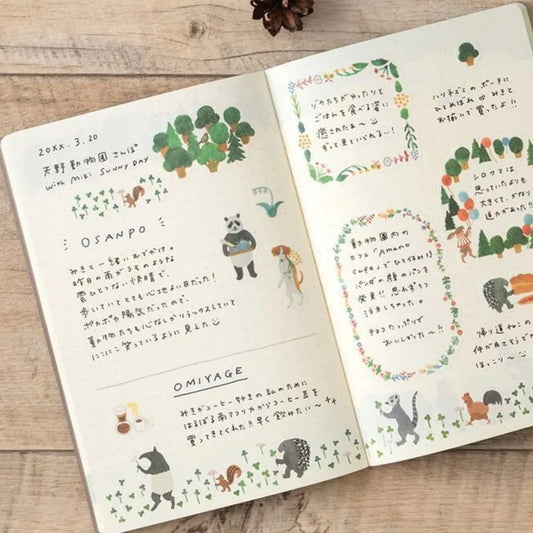 20XX. 3.20
天野動物園 さんぽ
with Miki SUNNY DAY
OSANPO
みきと一緒におでかけ。
昨日の雨がうそのような
雲ひとつない快晴で、
歩いていてとても心地よい日だった!
ポカポカ陽気だったので、
動物たちも心なしかリラックスしていて
にこにこ笑っているように見えた
OMIYAGE
みきがコーヒー好きの私のために
はるばる南アフリカからコーヒー豆を
買ってきてくれた!! 早く飲みたい〜
ゾウたちがゆったりと
ごはんを食べる姿に
癒されたぁ〜
ずっと見ていられるー!
動物園内の
カフェ「Amano
Cafe」でひと休み!
パンダの顔のパンを
発見!! 思わずつ
チョコたっぷりで
おいしかった〜!!
ハリネズミのポーチに
ひとめぼれ みきと
お揃いで買ったよ!!
シロクマは
思っていたよりも
大きくて、かなり
迫力があった!!
帰り道ねこの
仲が良さそうで
ほっこり〜